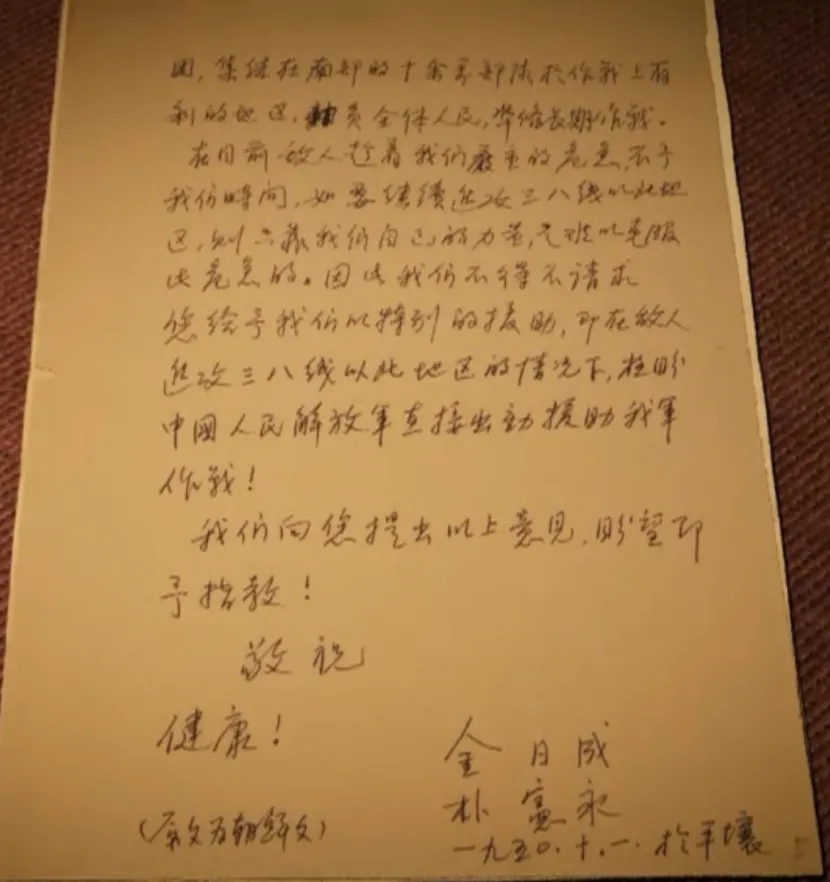 团，集结在南部的十余万部队於作战上有
利的地区，动员全体人民，準备長期作戰。
在目前敌人趁着我们嚴重的危急，不予
我们時间，如要继續进攻三八线以北地
区，则只靠我们自己的力量，是难以克服
此危急的。因此我们不得不请求
您给予我们以特别的援助，即在敌人
进攻三八线以北地区的情况下，极盼
中國人民解放軍直接出動援助我軍
作戰！
我们向您提出以上意见，盼望即
予指教！
敬祝
健康！
金日成
朴憲永
一九五〇.十.一.於平壤
（原文为朝鲜文）